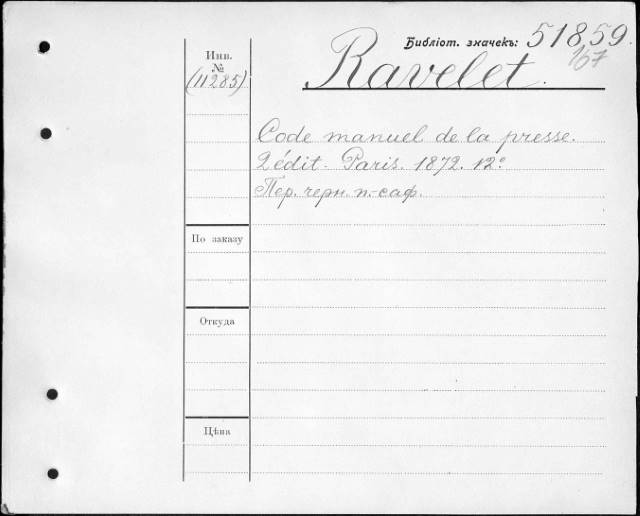 Библіот. значекъ: 51859.
167
Инв.
№
(11285)
Ravelet.
Code manuel de la presse.
2 édit. Paris. 1872. 12°
Пер. черн. п.-саф.
По заказу
Откуда
Цѣна